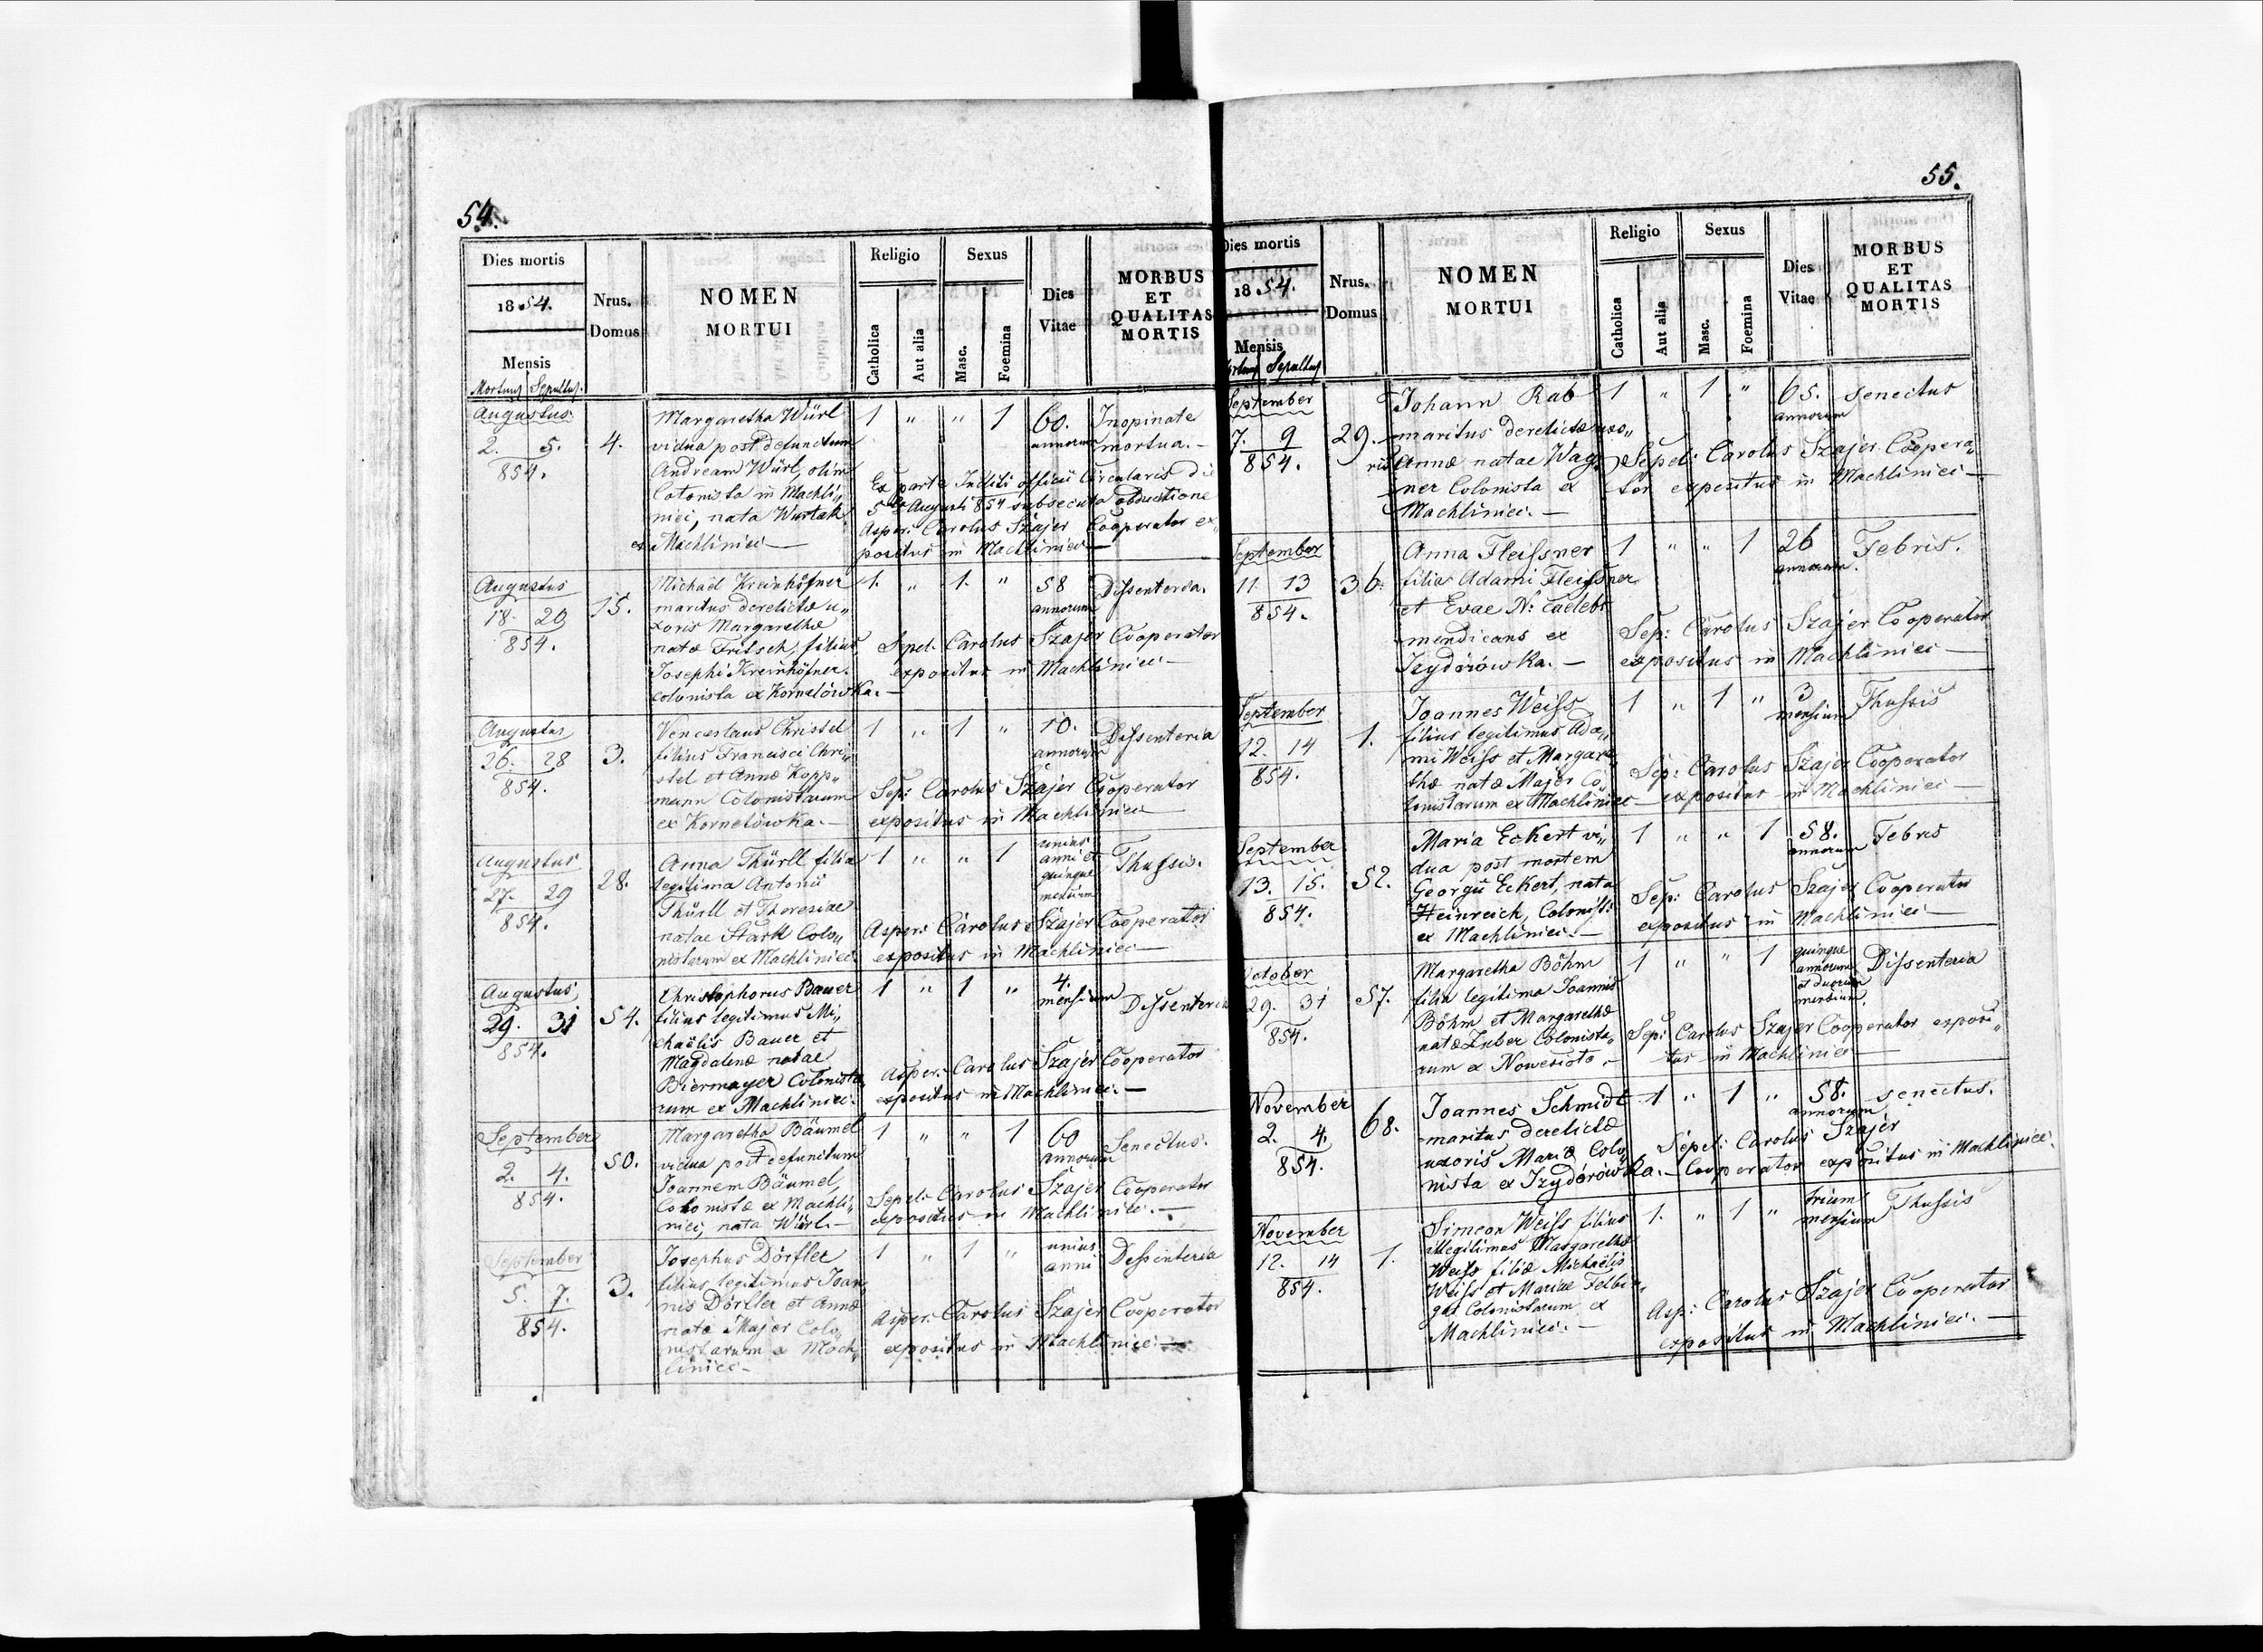 54.
Dies mortis
1854.
Mensis
Mortuus Sepultus.
Nrus.
Domus
NOMEN
MORTUI
Religio
Catholica
Aut alia
Sexus
Masc.
Foemina
Dies
Vitae
MORBUS
ET
QUALITAS
MORTIS
Augustus
2. 5.
854.
4.
Margaretha Würl
vidua post defunctum
Andream Würl, olim
Colonista in Machli„
niec, nata Wustak
ex Machliniec —
1 „ „ 1
60.
annorum
Inopinate
mortua. —
Ex parte Incliti officii Circularis die
5ta Augusti 854 subsecuta obductione
Asper: Carolus Szajer Cooperator ex„
positus in Machliniec —
Augustus
18. 20
854.
15.
Michael Kreinhöfner
maritus derelictæ u„
xoris Margarethæ
natæ Fritsch, filius
Josephi Kreinhöfner.
colonista ex Kornelówka. —
1. „ 1. „
58
annorum
Dissenteria.
Sepel: Carolus Szajer Cooperator
expositus in Machliniec —
Augustus
26. 28
854.
3.
Venceslaus Christel
filius Francisci Chri„
stel et Annæ Kopp„
mann Colonistarum
ex Kornelówka. —
1 „ 1 „
10.
annorum
Dissenteria
Sep: Carolus Szajer Cooperator
expositus in Machliniec
Augustus
27. 29
854.
28.
Anna Thürll filia
legitima Antonii
Thürll et Theresiae
natae Stark Colo„
nistarum ex Machliniec.
1 „ „ 1
unius
anni et
quinque
mensium
Thussis.
Asper: Carolus Szajer Cooperator
expositus in Machliniec —
Augustus
29. 31
854.
54.
Christophorus Bauer
filius legitimus Mi„
chaëlis Bauer et
Magdalenæ natae
Biermayer Colonista
rum ex Machliniec.
1 „ 1 „
4.
mensium
Dissenteria
Asper: Carolus Szajer Cooperator
expositus in Machliniec. —
September
2. 4.
854.
50.
Margaretha Bäumel
vidua post defunctum
Joannem Bäumel,
Colonistæ ex Machli„
niec, nata Würl. —
1 „ „ 1
60
annorum
Senectus.
Sepel: Carolus Szajer Cooperator
expositus in Machliniec. —
September
5. 7.
854.
3.
Josephus Dörfler
filius legitimus Joan„
nis Dörfler et Annæ
natæ Majer Colo„
nistarum ex Mach„
liniec —
1 „ 1 „
unius
anni
Dissenteria
Asper: Carolus Szajer Cooperator
expositus in Machliniec —
55.
Dies mortis
1854.
Mensis
Sepultus
Nrus.
Domus
NOMEN
MORTUI
Religio
Catholica
Aut alia
Sexus
Masc.
Foemina
Dies
Vitae
MORBUS
ET
QUALITAS
MORTIS
September
7. 9
854.
29.
Johann Rab
maritus derelictæ uxo„
ris Annæ natae Wag„
ner Colonista ex
Machliniec. —
1 „ 1 „
65.
annorum
senectus
Sepel: Carolus Szajer Coopera„
tor expositus in Machliniec —
September
11. 13
854.
36.
Anna Fleissner
filia Adami Fleissner
et Evae N: caelebs
mendicans ex
Izydorówka. —
1 „ „ 1
26
annorum.
Febris.
Sep: Carolus Szajer Cooperator
expositus in Machliniec —
September
12. 14
854.
1.
Joannes Weiss
filius legitimus Ada„
mi Weiss et Margare„
thæ natæ Majer Co„
lonistarum ex Machliniec —
1 „ 1 „
3
mensium
Thussis
Sep: Carolus Szajer Cooperator
expositus in Machliniec —
September
13. 15.
854.
52.
Maria Eckert vi„
dua post mortem
Georgii Eckert, nata
Heinreich, Colonist:
ex Machliniec. —
1 „ „ 1
58.
annorum
Febris
Sep: Carolus Szajer Cooperator
expositus in Machliniec —
October
29. 31
854.
57.
Margaretha Böhm
filia legitima Joannis
Böhm et Margarethæ
natæ Zuber Colonista„
rum ex Nowesioło. —
1 „ „ 1
quinque
annorum
et duorum
mensium.
Dissenteria
Sep: Carolus Szajer Cooperator exposi„
tus in Machliniec —
November
2. 4.
854.
68.
Joannes Schmidt
maritus derelictæ
uxoris Mariæ Colo„
nista ex Izydorówka. —
1 „ 1 „
58.
annorum
senectus.
Sepel: Carolus Szajer
Cooperator expositus in Machliniec.
November
12. 14
854.
1.
Simeon Weiss filius
illegitimus Margarethæ
Weiss filiæ Michaëlis
Weiss et Mariæ Felbin„
ger Colonistarum ex
Machliniec. —
1. „ 1 „
trium
mensium
Thussis
Asp: Carolus Szajer Cooperator
expositus in Machliniec. —